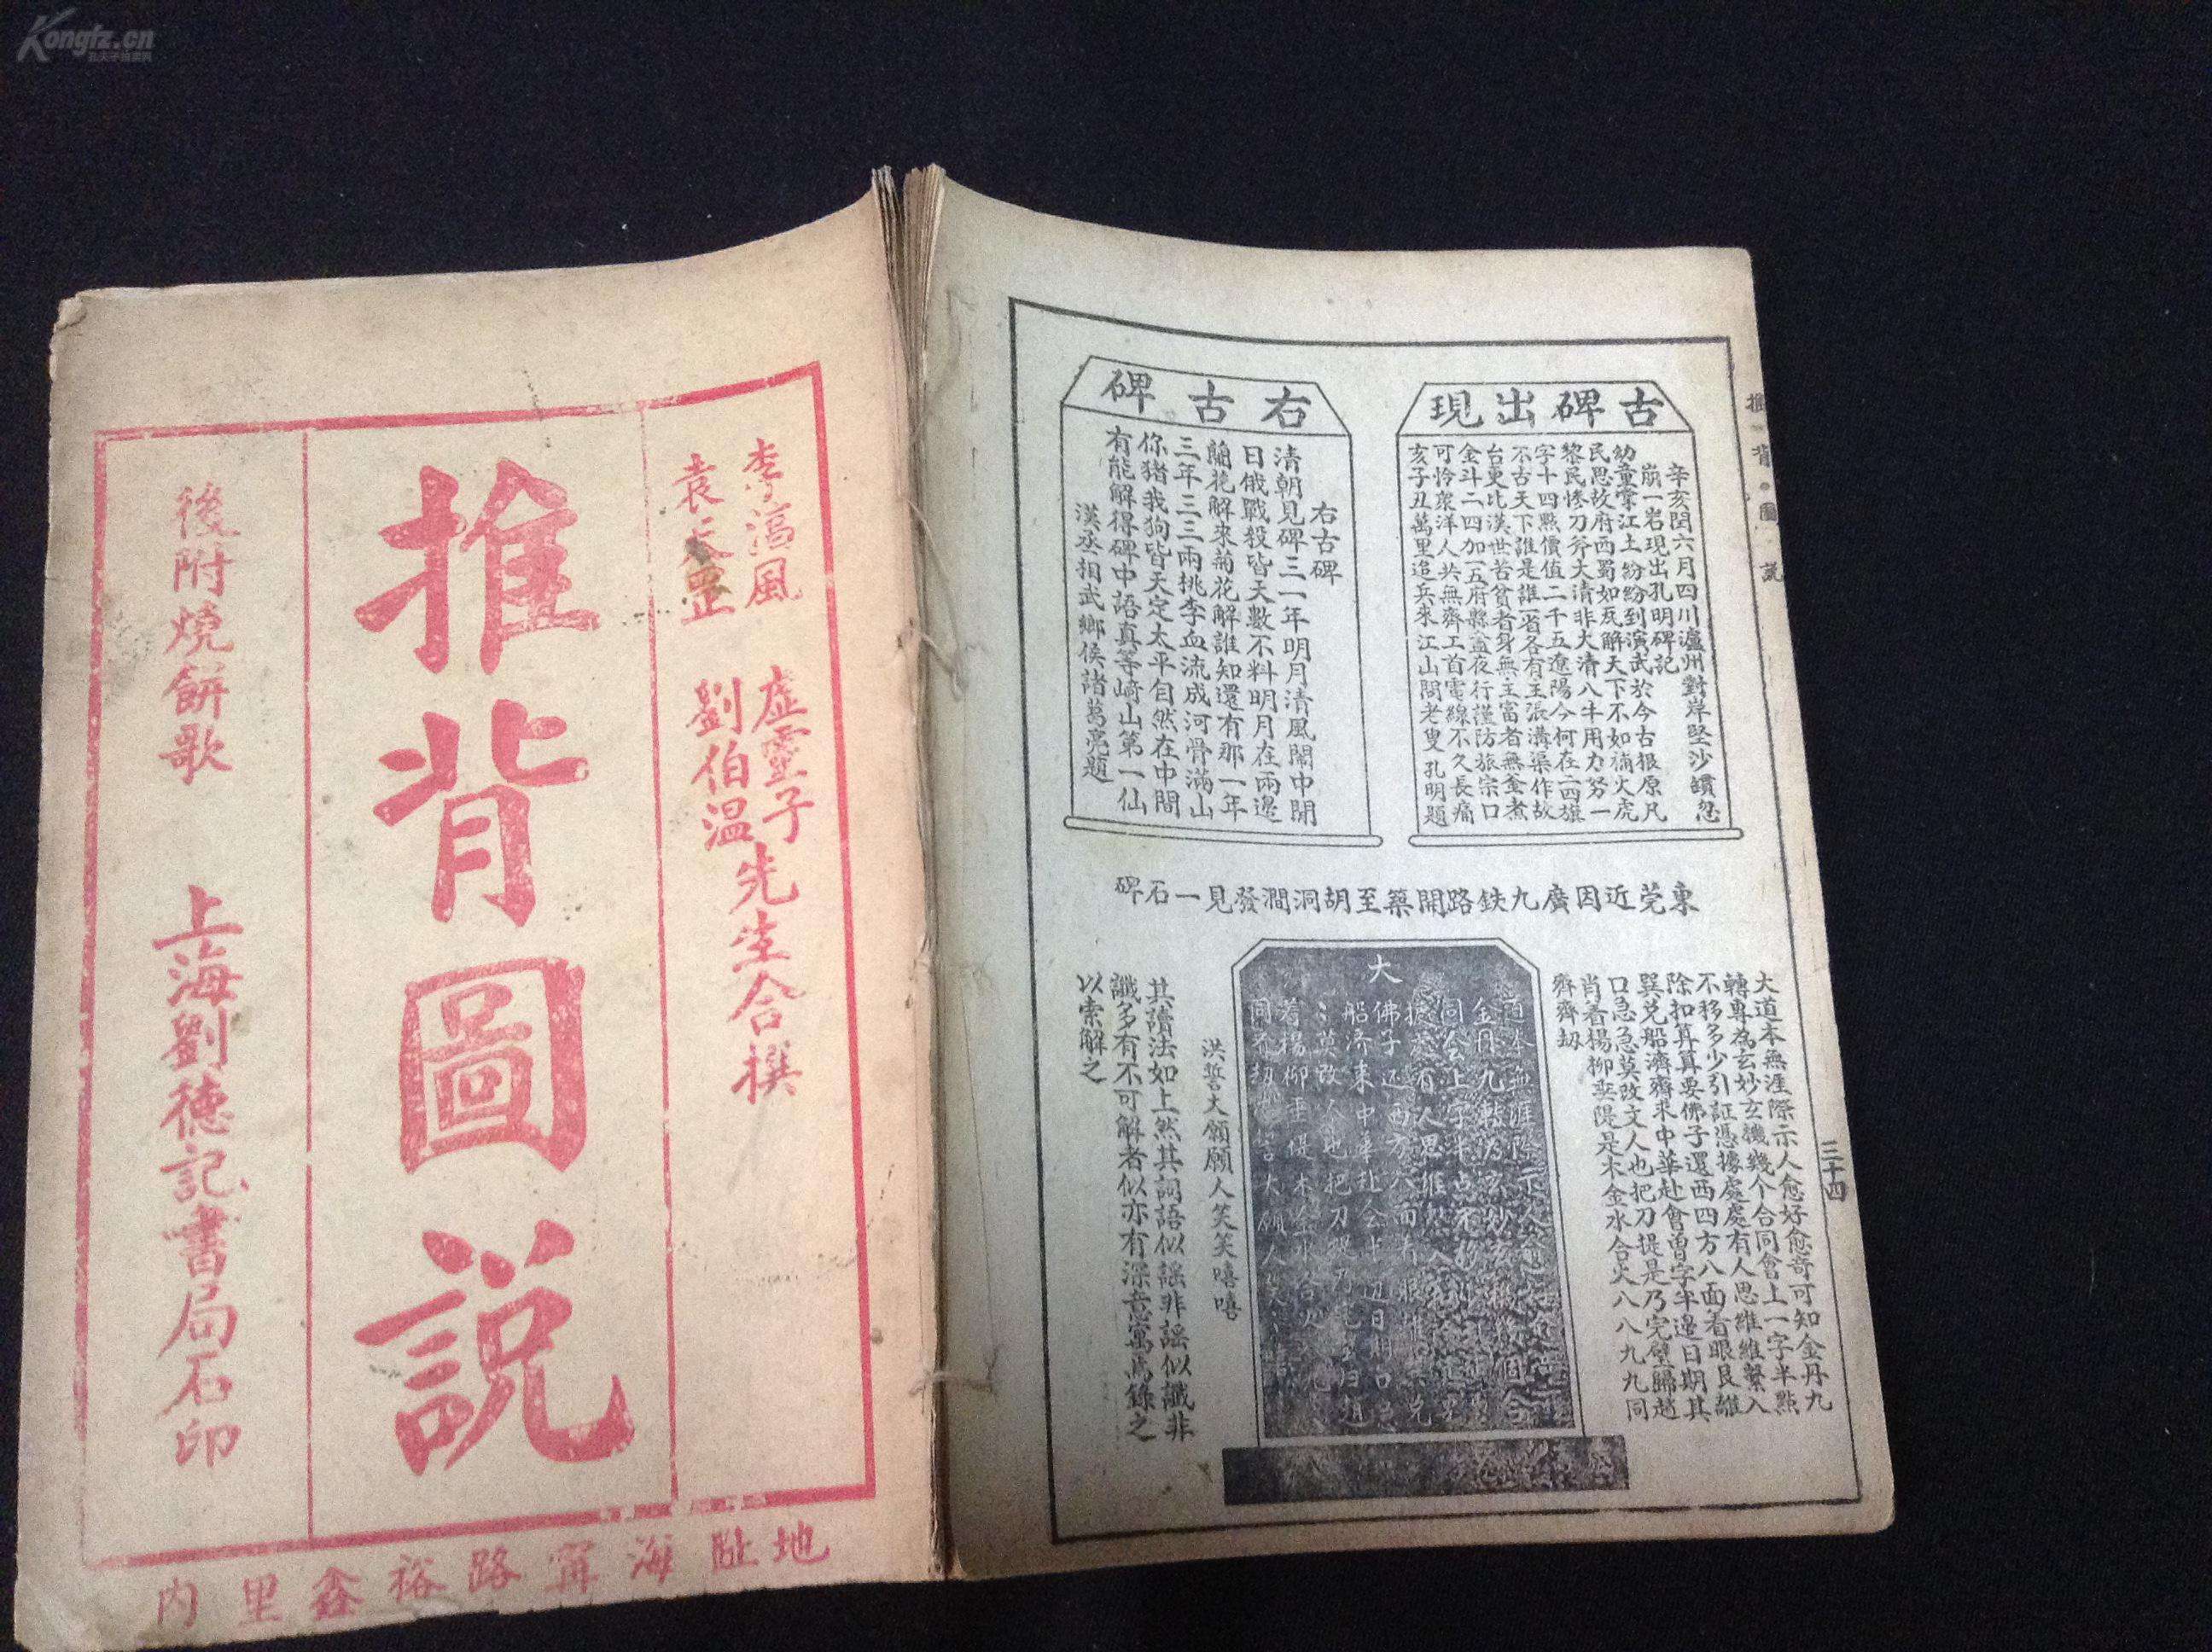 Kongfz.cn
李淳風
袁天罡
虛靈子
劉伯温
先生合撰
推背圖説
後附燒餅歌
上海劉德記書局石印
地址海甯路裕鑫里内
推背圖説
三十四
古碑出現
辛亥閏六月四川瀘州對岸堅沙鑽忽
崩一岩現出孔明碑記
幼童寧江土紛紛到演武於今古根原凡
民思故府西蜀如瓦解天下不如補火虎
黎民慘刀斧大清非大清八牛用力努一
字十四點價值二千五遼陽今何在二四旗
不古天下誰是誰一省各有王張溝渠作故
台更比漢世苦貧者身無主富者無金煮
金斗二四加一五府縣盡夜行謹防旅宗口
可怜衆洋人共無齊工首電線不久長痛
亥子丑萬里追兵來江山間老叟孔明題
右古碑
右古碑
清朝見碑三一年明月清風鬧中開
日俄戰殺皆天數不料明月在兩邊
蘭花解來菊花解誰知還有那一年
三年三三兩桃李血流成河骨滿山
你猪我狗皆天定太平自然在中間
有能解得碑中語真等崎山第一仙
漢丞相武鄉侯諸葛亮題
東莞近因廣九鉄路開築至胡洞澗發見一石碑
大道本無涯際示人愈好愈奇可知金丹九
轉專為玄妙玄機幾个合同會上一字半點
不移多少引証憑據處處有人思維維繫入
除扣算算要佛子還西四方八面着眼艮離
巽兑船濟齊來中華赴會曾字半邊日期其
口急急莫改文人也把刀提是乃完璧歸趙
肖着楊柳垂隄是木金水合火八八九九同
齊齊刧
大
洪誓大願願人笑笑嘻嘻
其讀法如上然其詞語似謡非謡似讖非
讖多有不可解者似亦有深意寓焉錄之
以索解之